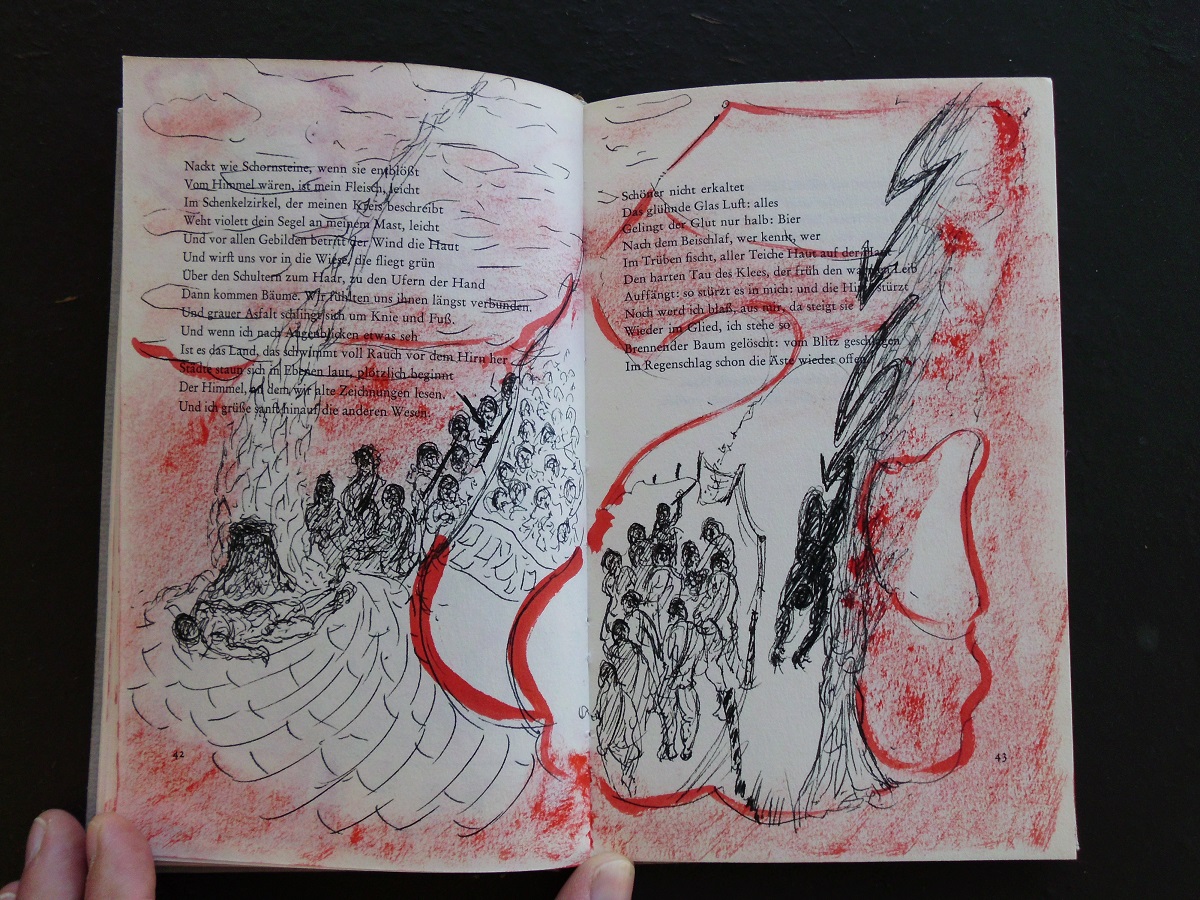 Nackt wie Schornsteine, wenn sie entblößt
Vom Himmel wären, ist mein Fleisch, leicht
Im Schenkelzirkel, der meinen Kreis beschreibt
Weht violett dein Segel an meinem Mast, leicht
Und vor allen Gebilden betritt der Wind die Haut
Und wirft uns vor in die Wiese, die fliegt grün
Über den Schultern zum Haar, zu den Ufern der Hand
Dann kommen Bäume. Wir fühlten uns ihnen längst verbunden.
Und grauer Asfalt schlingt sich um Knie und Fuß.
Und wenn ich nach Augenblicken etwas seh
Ist es das Land, das schwimmt voll Rauch vor dem Hirn her
Städte staun sich in Ebenen laut, plötzlich beginnt
Der Himmel, an dem wir alte Zeichnungen lesen.
Und ich grüße sanft hinauf die anderen Wesen.
42
Schöner nicht erkaltet
Das glühnde Glas Luft: alles
Gelingt der Glut nur halb: Bier
Nach dem Beischlaf, wer kennt, wer
Im Trüben fischt, aller Teiche Haut auf der Haut
Den harten Tau des Klees, der früh den warmen Leib
Auffängt: so stürzt es in mich: und die stürzt
Noch werd ich blaß, aus mir, da steigt sie
Wieder im Glied, ich stehe so
Brennender Baum gelöscht: vom Blitz geschlagen
Im Regenschlag schon die Äste wieder offen
43